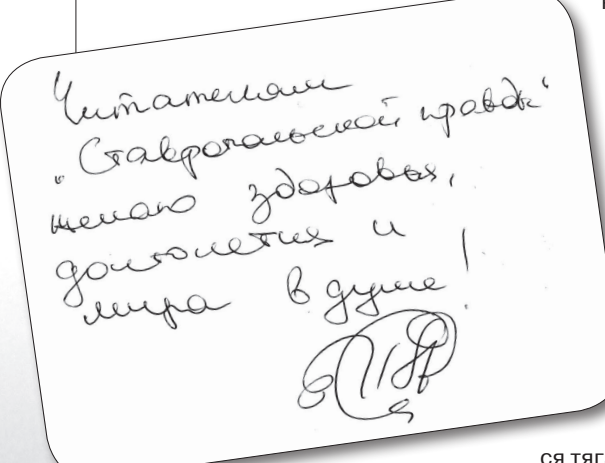 Читателям
"Ставропольской правды"
желаю здоровья,
долголетия и
мира в душе!
ся тяг